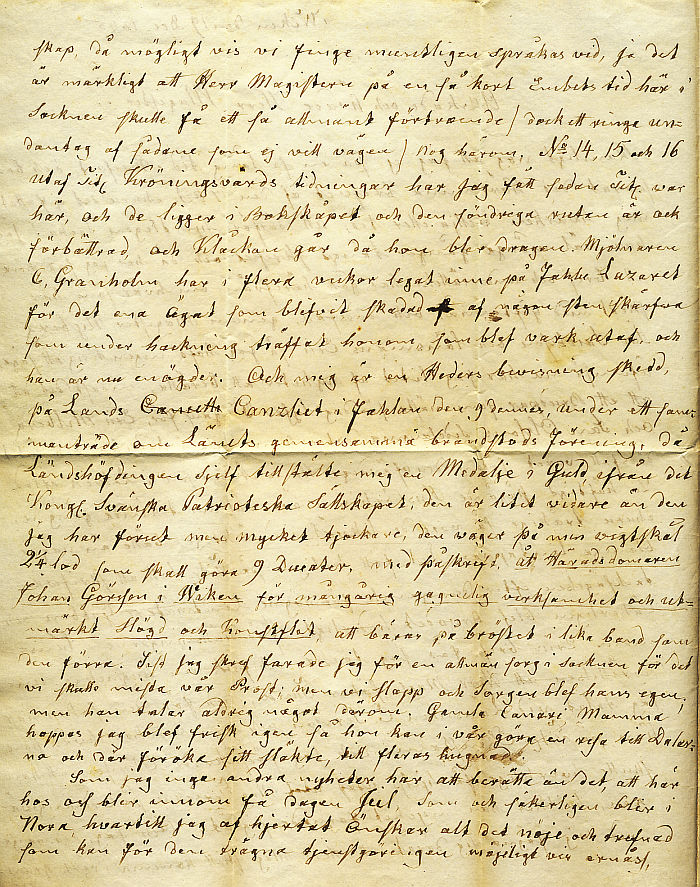 skap, då mögligt vis vi finge muntligen språkas vid, ja det
är märkligt att Herr Magistern på en så kort Embets tid här i
Socknen skulle få ett så allmänt förtroende / dock ett ringa un-
dantag af sådane som ej vill vägen / Nog härom, No 14, 15 och 16
utaf Tit. Kröningsvärds tidningar har jag fått sedan Tit. war
här, och de ligger i Bokskåpet och den söndrega rutan är ock
förbättrad, och Klåckan går då hon bler dragen. Mjölnaren
C. Granholm har i flera veckor legat inne på Fahlu Lazaret
för det ena Ögat som blefvit skadad af någon sten skärfva
som under hackning träffat honom, som blef vark utaf, och
han är nu enögder. Och mig är en Heders bevisning skedd,
på Lands Canzliet i Fahlun den 9 dennes, under ett sam-
manträde om Länets gemensamma brandstods Förening, då
Landshöfdingen sjelf tillstälte mig en Medalje i Guld ifrån det
Kongl. Svänska Patrioteska Sällskapet, den är litet vidare än den
jag har förset men mycket tjockare, den väger på min vigtskål
2 1/4 lod som skall göra 9 Ducater, med påskrift, åt Häradsdomaren
Johan Görsson i Wiken för mångårig gagnelig verksamhet och ut-
märkt Slögd och Konstflit, att bäras på bröstet i lika band som
den förra. Sist jag skref farade jag för en allmän sorg i Socknen för det
vi skulle mista vår Prost, men vi slapp och Sorgen blef hans egen,
men han talar aldrig något därom. Gamla Canari Mamma
hoppas jag blef frisk igen så hon kan i vår göra en resa till Dalar-
na och där föröka sitt släkte, till fleras hugnad.
Som jag inga andra nyheter har att berätta än det, att här
hos oss bler innom få dagen Jul, som och säkerligen bler i
Nora, hvartill jag af hjertat Önskar alt det nöje och trefnad
som kan för den trägna tjenstgöringen möjeligt vis ernås,